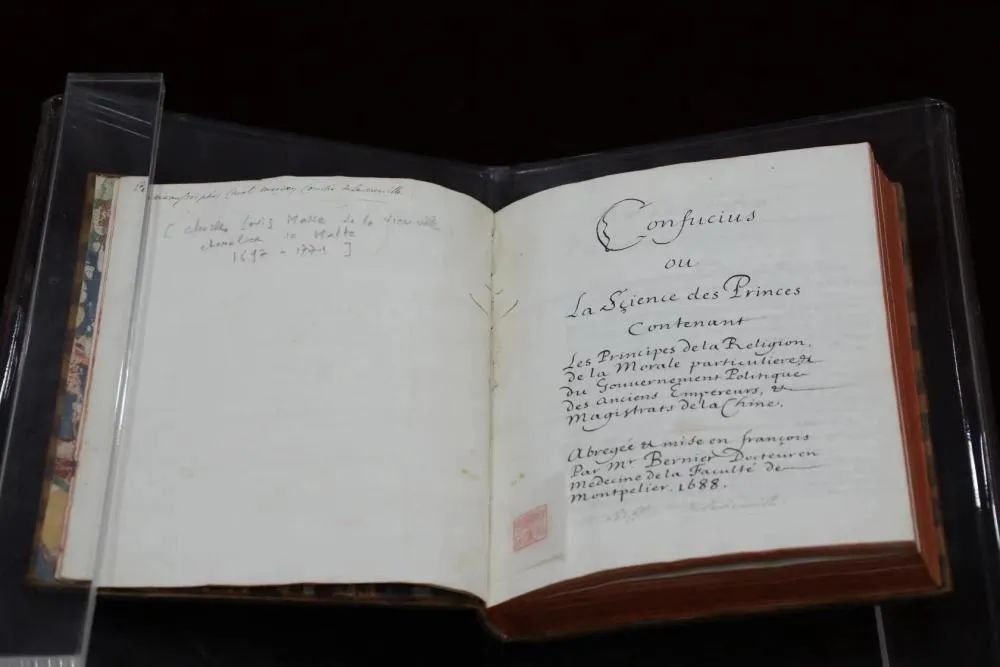 Ce manuscriptus
[ Charles Louis Marie de la Vieuville
chevalier de Malte
1697 - 1771 ]
Confucius
ou
La Sçience des Princes
Contenant
Les Principes de la Religion,
de la Morale particuliere, &
du Gouvernement Politique
des Anciens Empereurs, &
Magistrats de la Chine.
Abregée & mise en françois
Par Mr. Bernier Docteur en
Medecine de la Faculté de
Montpelier. 1688.